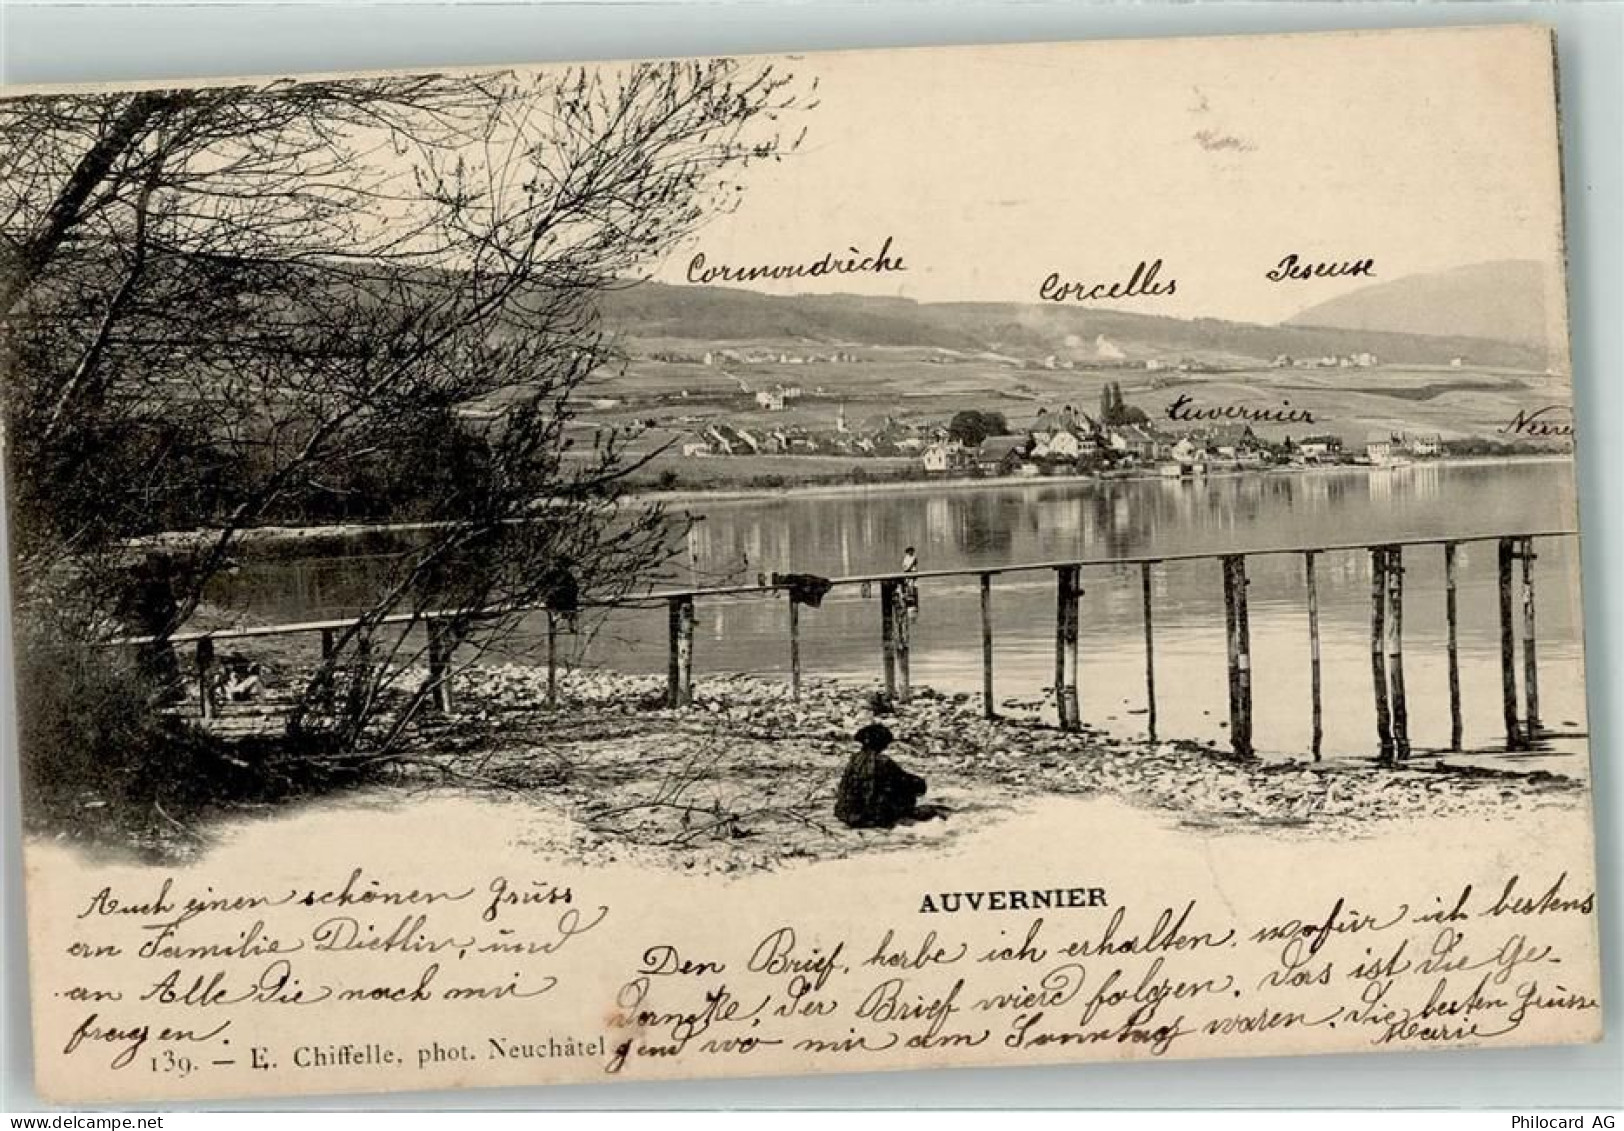 Cormondrèche
Corcelles
Peseuse
Auvernier
AUVERNIER
Auch einen schönen Grüss
an Familie Dietliv, und
an Alle die nach mir
fragen.
Den Brief, habe ich erhalten, wofür ich bestens
danke, der Brief wird folgen. Das ist die Ge-
gend wo mir am Sonntag waren. Die besten Grüsse
Marie
139. — E. Chiffelle, phot. Neuchâtel
Philocard AG